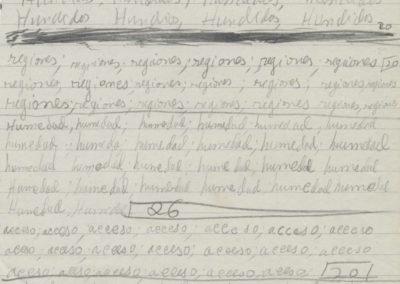 Hundidos Hundidos, Hundidos, Hundidos
Hundidos, Hundios, Hundidos, Hundidos 20
regiones; regiones; regiones; regiones, regiones, regiones 20
regiones, regiones regiones; regiones; regiones; regiones, regiones
regiones; regiones; regiones; regiones regiones, regiones regiones, regiones
Humedad, humedad; humedad; humedad humedad, humedad
humedad; humeda; humedad; humedad, humedad; humedad
humedad humedad humedad; humedad, humedad humedad
Humedad humedad humedad humedad humedad humedad
Humedad, Humedad 26
acceso, acceso, acceso; acceso; acceso, acceso; acceso
acceso, acaso acceso, acceso; acceso; acceso, acceso
acceso; acceso; acceso, acceso; acceso, acceso 20